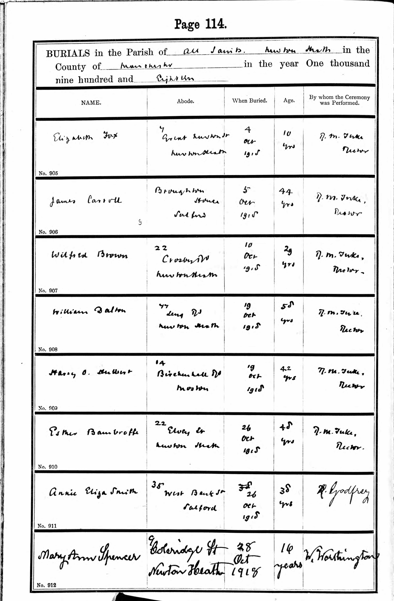 Page 114.
BURIALS in the Parish of All Saints, Newton Heath in the
County of Manchester in the year One thousand
nine hundred and Eighteen
NAME. Abode. When Buried. Age. By whom the Ceremony was Performed.
Elizabeth Fox
Great Newton St
Newton Heath
4
Oct
1918
10
yrs
Rector
No. 905
James Carroll
Broughton
House
Salford
5
Oct
1918
44
yrs
Rector
No. 906
Wilfred Brown
22
Crosby Rd
Newton Heath
10
Oct
1918
29
yrs
Rector
No. 907
William Dalton
Rd
Newton Heath
19
Oct
1918
58
yrs
Rector
No. 908
Harry O.
14
Birchenhall Rd
Moston
19
Oct
1918
42
yrs
Rector
No. 909
Esther
22
St
Newton Heath
26
Oct
1918
48
yrs
Rector.
No. 910
Annie Eliza Smith
35
West Bank St
Salford
26
Oct
1918
38
yrs
Godfrey
No. 911
Mary Ann Spencer
9
Coleridge St
Newton Heath
28
Oct
1918
16
years
W. Worthington
No. 912